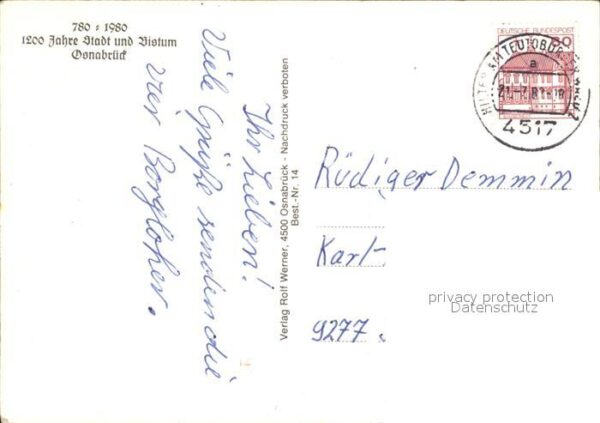 780 : 1980
1200 Jahre Stadt und Bistum
Osnabrück
Ihr Lieben!
Viele Grüße senden die
vier Borgloher.
Verlag Rolf Werner, 4500 Osnabrück - Nachdruck verboten
Best.-Nr. 14
DEUTSCHE BUNDESPOST
AM TEUTOBUR
a
4517
Rüdiger Demmin
Karl-
privacy protection
Datenschutz